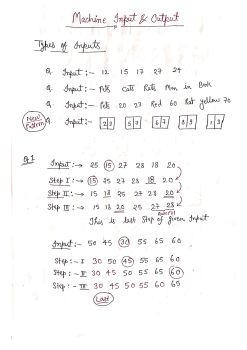 Machine Input & Output
Types of Inputs
Q. Input :- 12 15 17 27 24
Q. Input :- Pots Cats Rats Man in Book
Q. Input :- Pots 20 27 Red 60 Rat yellow 70
New Pattern Q. Input :-
Q.1 Input :- 25 15 27 28 18 20
Step I :- 15 25 27 28 18 20
Step II :- 15 18 25 27 28 20
Step III :- 15 18 20 25 27 28
This is last Step of given Input
Input :- 50 45 30 55 65 60
Step :- I 30 50 45 55 65 60
Step :- II 30 45 50 55 65 60
Step :- III 30 45 50 55 60 65
Last